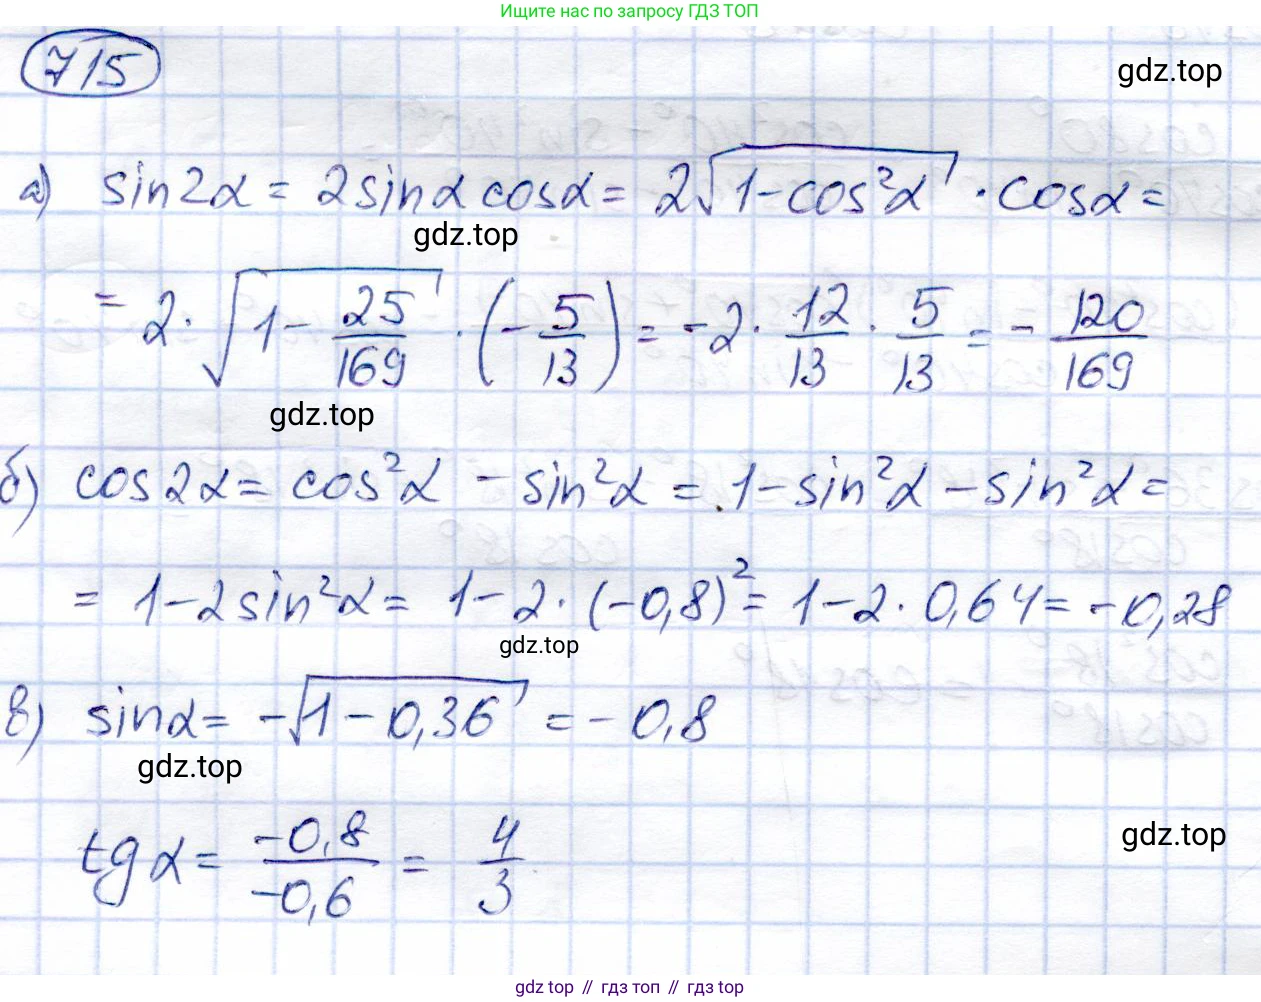 Ищите нас по запросу ГДЗ ТОП
715
gdz.top
а) sin2α = 2sinα cosα = 2√(1-cos²α) · cosα =
gdz.top
= 2 · √(1 - 25/169) · (-5/13) = -2 · 12/13 · 5/13 = - 120/169
gdz.top
б) cos2α = cos²α - sin²α = 1 - sin²α - sin²α =
= 1 - 2sin²α = 1 - 2 · (-0,8)² = 1 - 2 · 0,64 = -0,28
gdz.top
в) sinα = -√(1 - 0,36) = -0,8
gdz.top
tgα = -0,8/-0,6 = 4/3
gdz.top
gdz top // гдз топ // гдз top